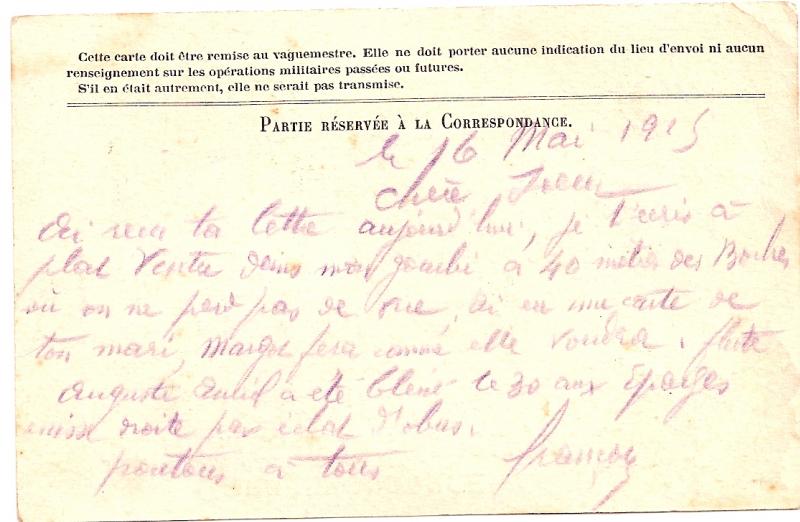 Cette carte doit être remise au vaguemestre. Elle ne doit porter aucune indication du lieu d'envoi ni aucun
renseignement sur les opérations militaires passées ou futures.
S'il en était autrement, elle ne serait pas transmise.
PARTIE RÉSERVÉE À LA CORRESPONDANCE.
le 16 Mai 1915
Chère
Ai recu ta lettre aujourd'hui, je t'ecris à
plat Ventre dans mon gourbi à 40 mètres des Boches
où on ne perd pas de vue, Ai eu une carte de
ton mari, Margot fera comme elle voudra.
Auguste a été blessé le 30 aux Eparges
cuisse droite par éclat d'obus.
poutous à tous François